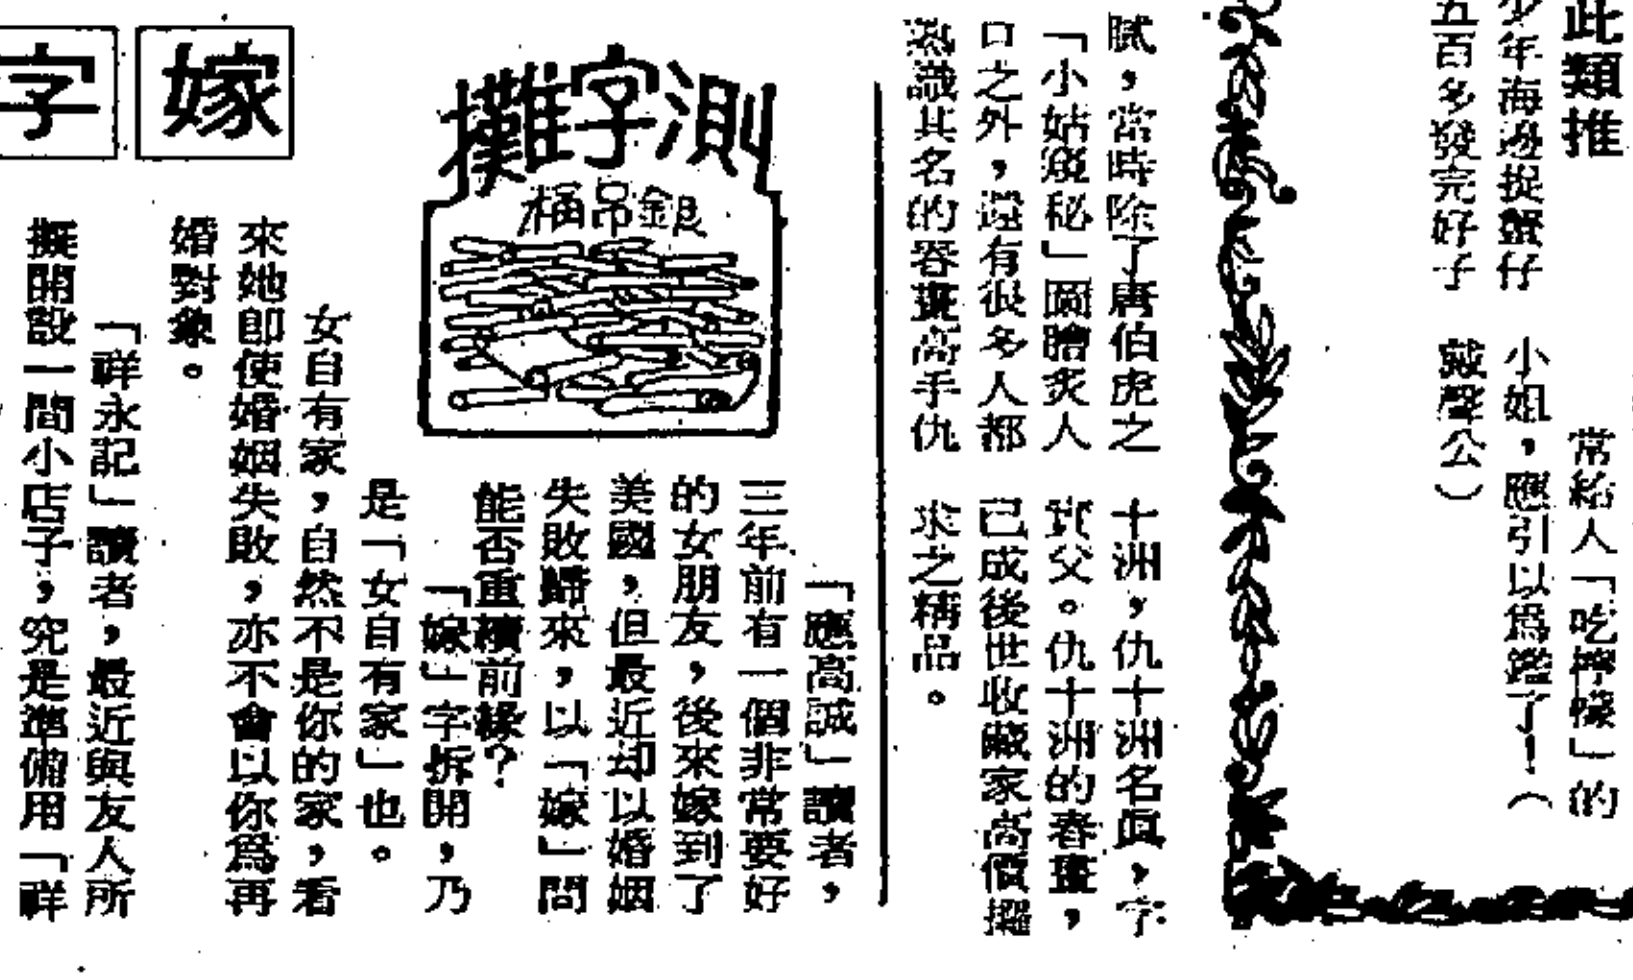 此類推
少年海邊捉蟹仔
五百多發完好子
常給人「吃檸檬」的
小姐，應引以爲鑑了！（
戴聲公）
膩，當時除了唐伯虎之
「小姑窺秘」圖膾炙人
口之外，還有很多人都
熟識其名的春畫高手仇
十洲，仇十洲名眞，字
實父。仇十洲的春畫，
已成後世收藏家高價搜
求之精品。
測字攤
銀吊桶
嫁
字
「應高誠」讀者，
三年前有一個非常要好
的女朋友，後來嫁到了
美國，但最近却以婚姻
失敗歸來，以「嫁」問
能否重續前緣？
「嫁」字拆開，乃
是「女自有家」也。
女自有家，自然不是你的家，看
來她即使婚姻失敗，亦不會以你爲再
婚對象。
「祥永記」讀者，最近與友人所
擬開設一間小店子，究是準備用「祥